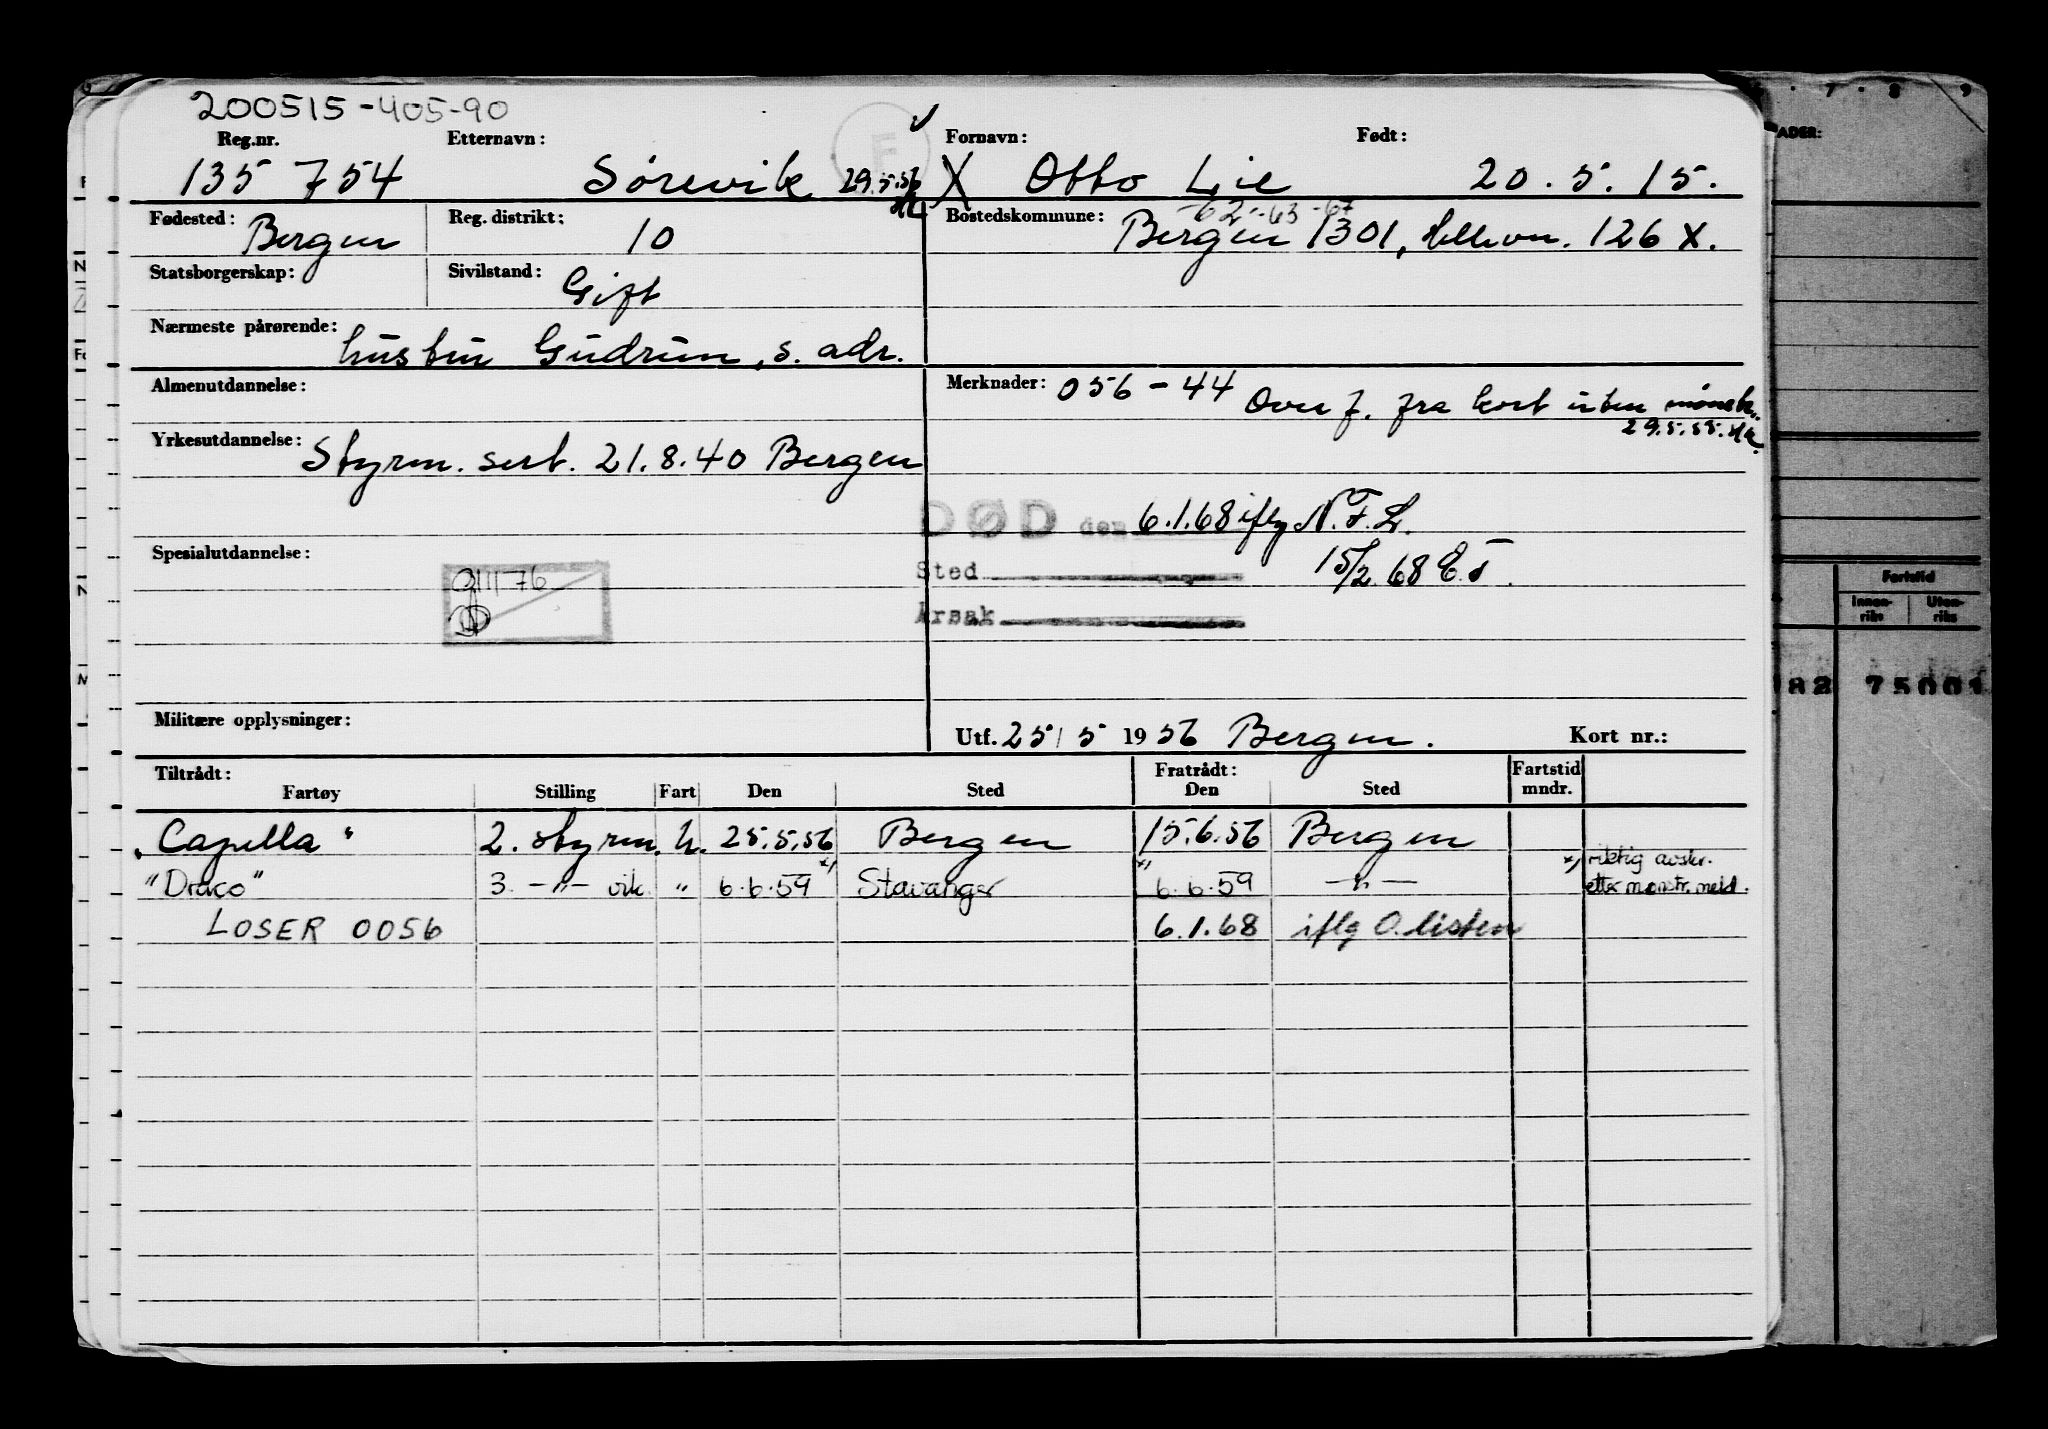 200515-405-90
Reg.nr. Etternavn: Fornavn: Født:
135 754 Sörevik 29.5.56 X Otto Lie 20.5.15.
Fødested: Bergen Reg. distrikt: 10 Bostedskommune: -62-63-67
Bergen 1301, Hellevn. 126 X.
Statsborgerskap: Sivilstand: Gift
Nærmeste pårørende: hustru Gudrun, s. adr.
Almenutdannelse: Merknader: 056-44 Overf. fra kort uten mönstr.
29.5.55.
Yrkesutdannelse: Styrm. sert. 21.8.40 Bergen
DØD den 6.1.68 iflg N.F.L.
Spesialutdannelse: Sted 15/2.68 E.T.
Årsak
Militære opplysninger: Utf. 25/5 1956 Bergen. Kort nr.:
Tiltrådt: Fratrådt: Fartstid
Fartøy Stilling Fart Den Sted Den Sted mndr.
"Capella" 2. styrm. U. 25.5.56 Bergen 15.6.56 Bergen
"Draco" 3. -"- vik. " 6.6.59 x) Stavanger x) 6.6.59 -"- x) riktig avskr.
etter mønstr.meld.
LOSER 0056 6.1.68 iflg O.listen
7 . 8 9
ADER:
Fartstid
Innen-
riks
Uten-
riks
82 75001